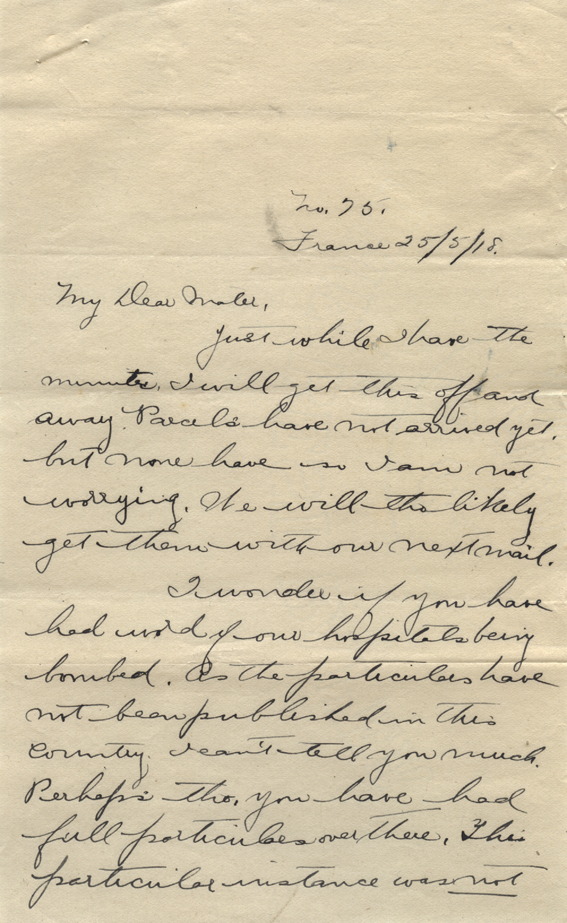 No. 75.
France 25/5/18.
My Dear Mater,
Just while I have the
minutes, I will get this off and
away. Parcels have not arrived yet,
but none have so I am not
worrying. We will tho likely
get them with our next mail.
I wonder if you have
had word of our hospitals being
bombed. As the particulars have
not been published in this
country, I can't tell you much.
Perhaps tho, you have had
full particulars over there. This
particular instance was not